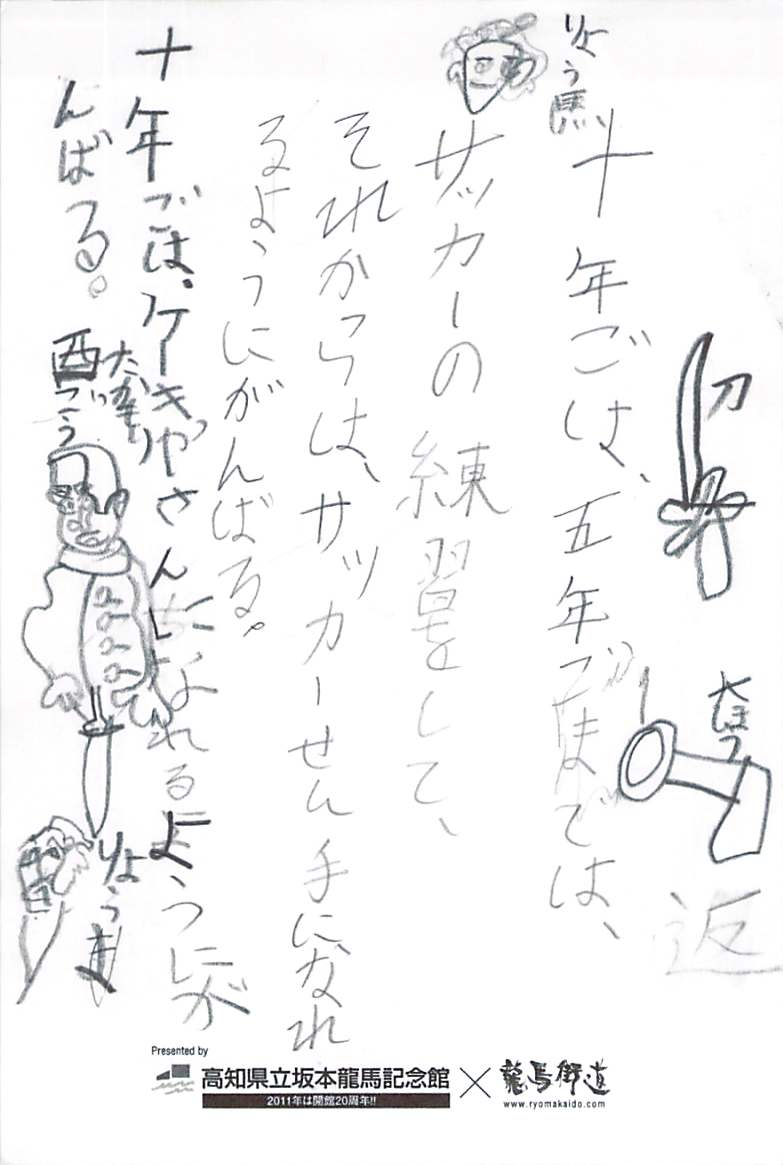 刀
大ほう
返
りょう馬
十年ごは、五年ごまでは、
サッカーの練習をして、
それからは、サッカーせん手になれ
るようにがんばる。
十年ごは、ケーキやさんになれるようにが
んばる。
りょうま
Presented by
高知県立坂本龍馬記念館
2011年は開館20周年!!
×
龍馬街道
www.ryomakaido.com